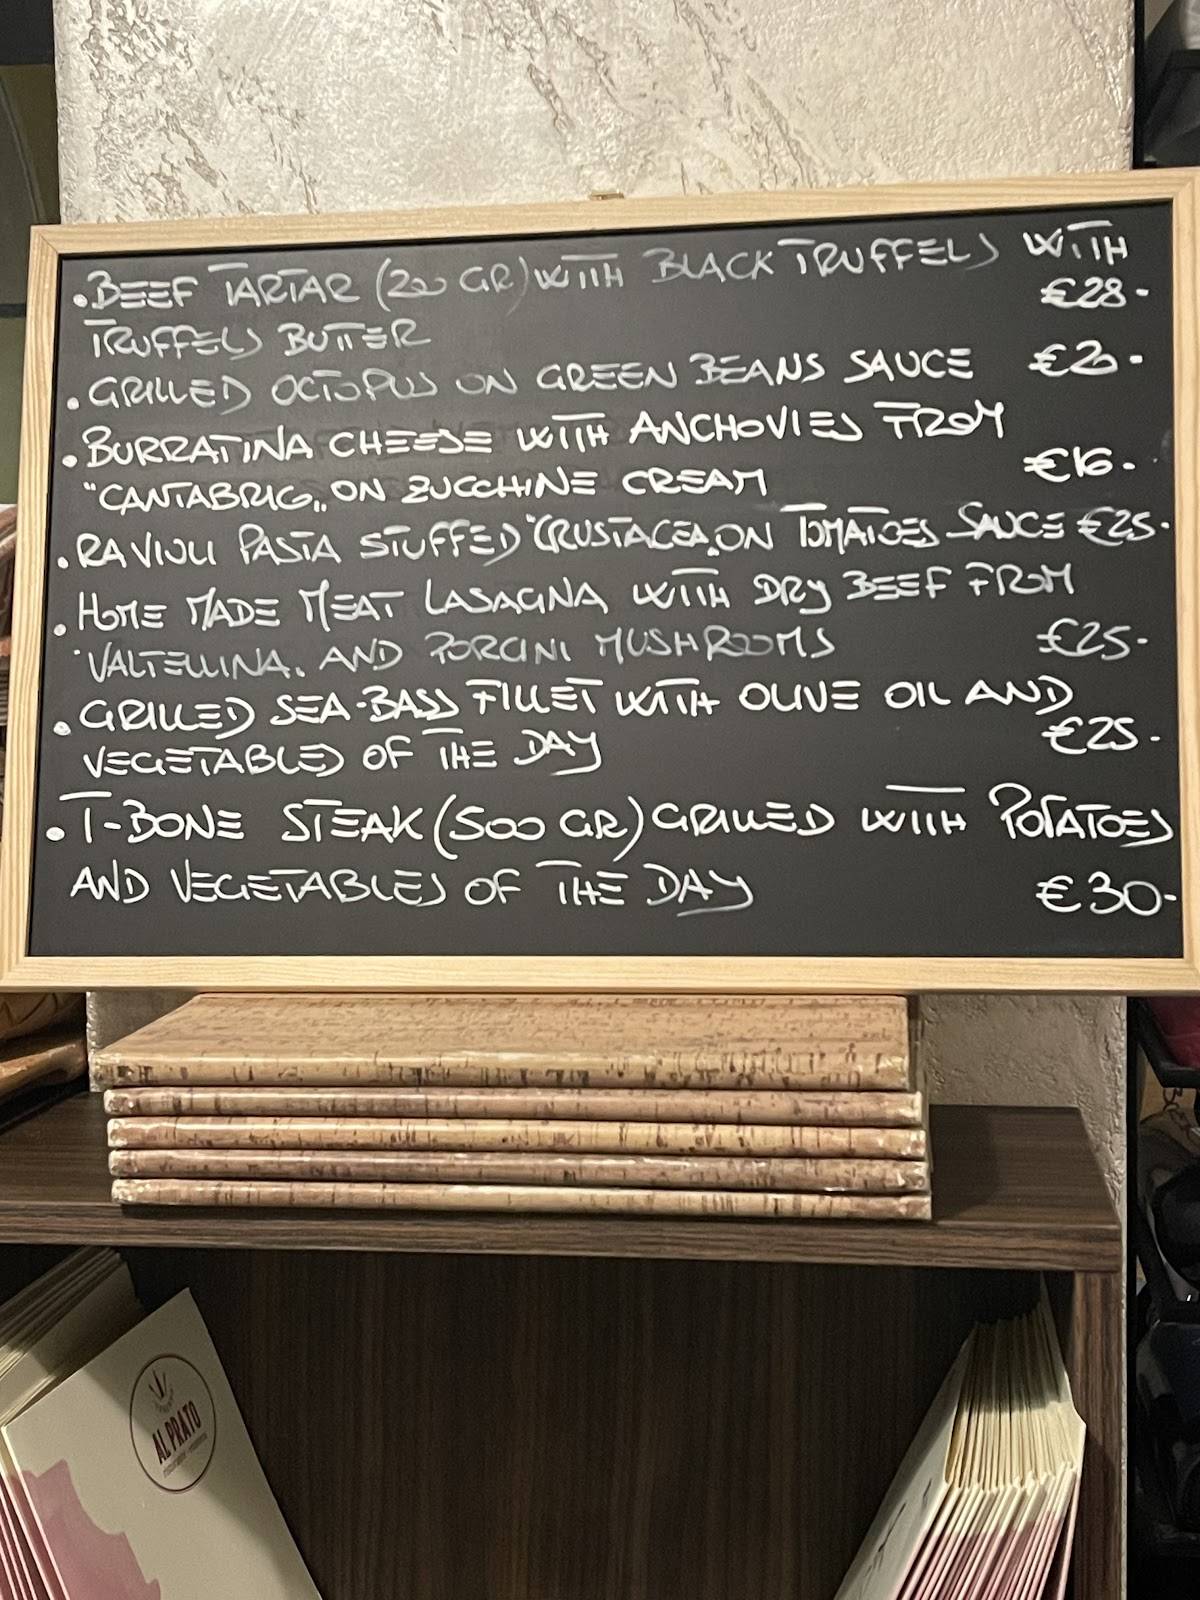 • BEEF TARTAR (200 GR) WITH BLACK TRUFFELS WITH
TRUFFELS BUTTER €28-
• GRILLED OCTOPUS ON GREEN BEANS SAUCE €20-
• BURRATINA CHEESE WITH ANCHOVIES FROM
"CANTABRIG„ ON ZUCCHINE CREAM €16-
• RAVIOLI PASTA STUFFED "CRUSTACEA„ ON TOMATOES SAUCE €25-
• HOME MADE MEAT LASAGNA WITH DRY BEEF FROM
"VALTELLINA„ AND PORCINI MUSHROOMS €25-
• GRILLED SEA-BASS FILLET WITH OLIVE OIL AND
VEGETABLES OF THE DAY €25-
• T-BONE STEAK (500 GR) GRILLED WITH POTATOES
AND VEGETABLES OF THE DAY €30-
AL PRATO